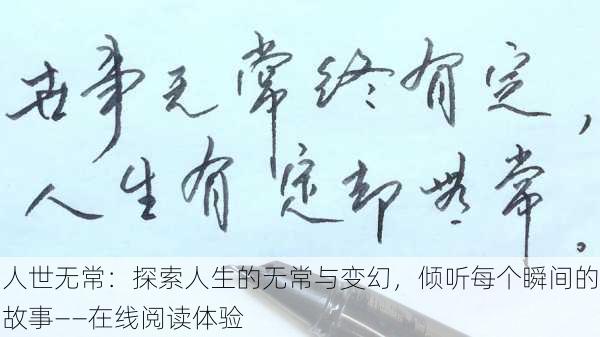 世事无常终有定，
人生有定却无常。
人世无常：探索人生的无常与变幻，倾听每个瞬间的
故事——在线阅读体验